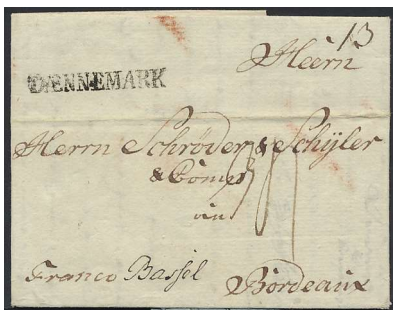 13
Heern
DENNEMARK
Herrn Schröder & Schÿler
& Comp
in
Franco Bassel
Bordeaux